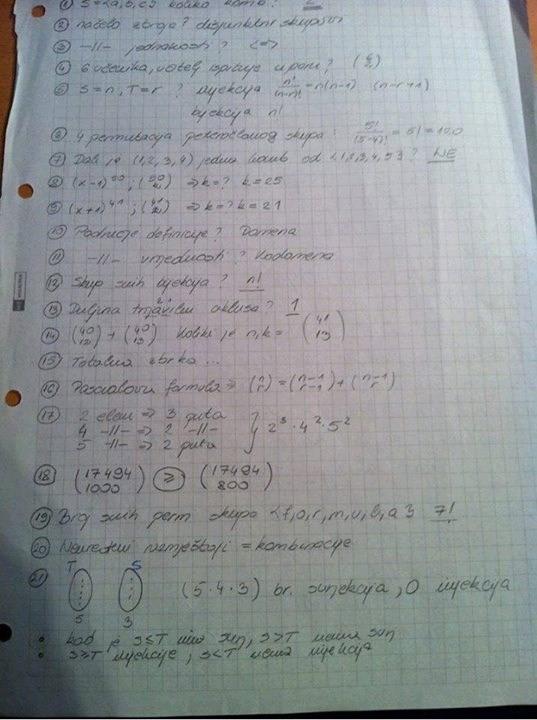 ① S = {a, b, c} koliko komb? 2
② načelo zbroja? disjunktni skupovi
③ -11- jednakosti? <=>
④ 6 učenika, učitelj ispituje u paru? (6 2)
⑤ S = n, T = r ? injekcija n!/(n-r)! = n(n-1) (n-r+1)
bijekcija n!
⑥ 4 permutacija peteročlanog skupa: 5!/(5-4)! = 5! = 120
⑦ Dali je (1, 2, 3, 4) jedna komb od {1, 2, 3, 4, 5}? NE
⑧ (x-1)^50 ; (50 k) => k = ? k = 25
⑨ (x+1)^41 ; (41 k) => k = ? k = 21
⑩ Područje definicije? Domena
⑪ -11- vrijednosti? Kodomena
⑫ Skup svih bijekcija? n!
⑬ Duljina trivijalnog ciklusa? 1
⑭ (40 12) + (40 13) koliki je n, k = (41 13)
⑮ Totalna zbrka ...
⑯ Pascalova formula => (n r) = (n-1 r-1) + (n-1 r)
⑰ 2 elem => 3 puta
4 -11- => 2 -11- } 2^3 · 4^2 · 5^2
5 -11- => 2 puta
⑱ (17494 1000) ≥ (17494 800)
⑲ Broj svih perm skupa {f, o, r, m, u, l, a} 7!
⑳ Neuređeni razmještaji = kombinacije
㉑ T S
5 3
(5·4·3) br. surjekcija, 0 injekcija
• kad je S≤T ima surj, S>T nema surj
• S≥T injekcije, S<T nema injekcija